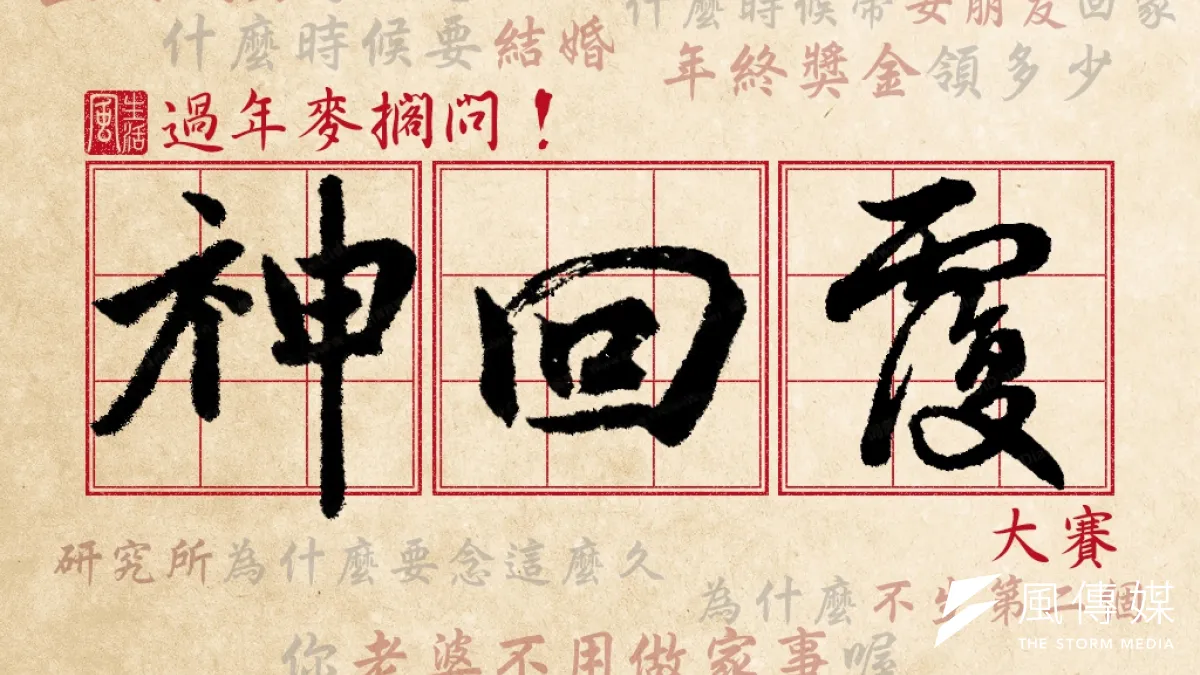 什麼時候帶女朋友回家
什麼時候要結婚
年終獎金領多少
風生活
過年麥擱問！
神回覆
大賽
研究所為什麼要念這麼久
為什麼不生第二個
風傳媒
THE STORM MEDIA
你老婆不用做家事喔